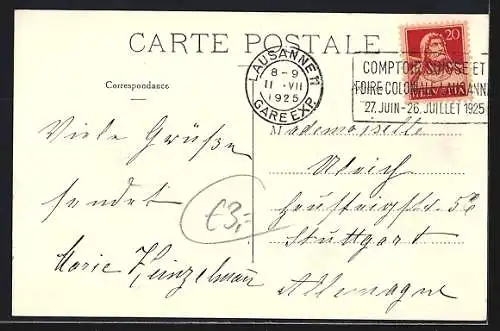 CARTE POSTALE
Correspondance
LAUSANNE 11
8-9
11 · VII
1925
GARE EXP.
20
HELVETIA
COMPTOIR SUISSE ET
FOIRE COLONIALE LAUSANNE
27. JUIN - 26. JUILLET 1925
Viele Grüße
sendet
Marie Künzelmann
£3,-
Mademoiselle
Ulrich
Stuttgart
Allemagne